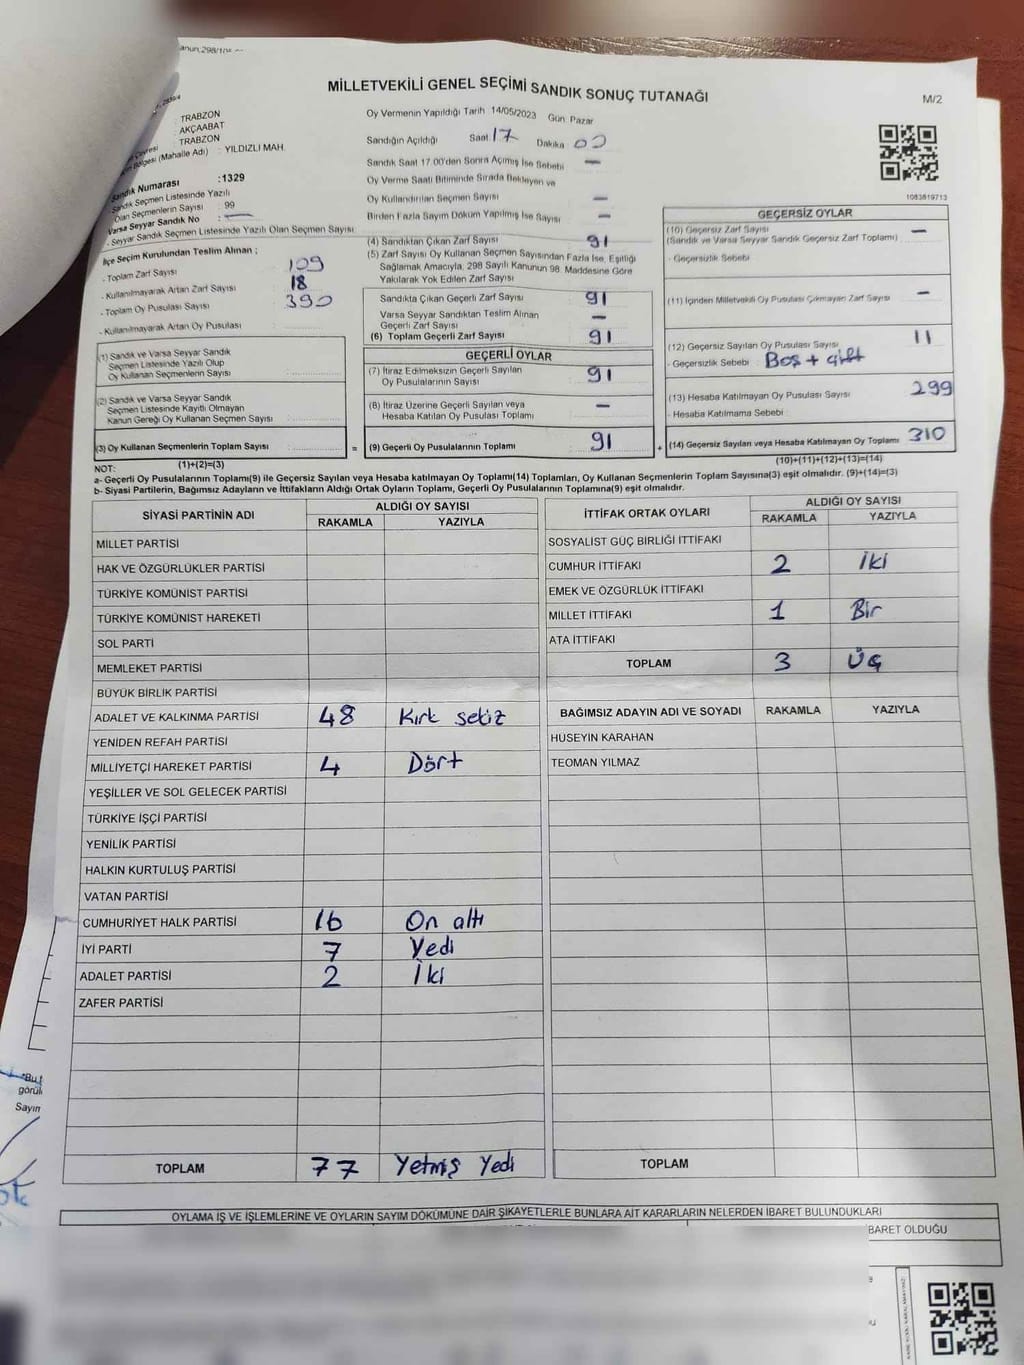 MİLLETVEKİLİ GENEL SEÇİMİ SANDIK SONUÇ TUTANAĞI
M/2
: TRABZON
: AKÇAABAT
: TRABZON
Bölgesi (Mahalle Adı) : YILDIZLI MAH.
Sandık Numarası :1329
Sandık Seçmen Listesinde Yazılı
Olan Seçmenlerin Sayısı : 99
Varsa Seyyar Sandık No : —
- Seyyar Sandık Seçmen Listesinde Yazılı Olan Seçmen Sayısı
İlçe Seçim Kurulundan Teslim Alınan ;
- Toplam Zarf Sayısı 109
- Kullanılmayarak Artan Zarf Sayısı 18
- Toplam Oy Pusulası Sayısı 390
- Kullanılmayarak Artan Oy Pusulası
(1) Sandık ve Varsa Seyyar Sandık
Seçmen Listesinde Yazılı Olup
Oy Kullanan Seçmenlerin Sayısı
(2) Sandık ve Varsa Seyyar Sandık
Seçmen Listesinde Kayıtlı Olmayan
Kanun Gereği Oy Kullanan Seçmen Sayısı
(3) Oy Kullanan Seçmenlerin Toplam Sayısı
(1)+(2)=(3)
Oy Vermenin Yapıldığı Tarih 14/05/2023 Gün Pazar
Sandığın Açıldığı Saat 17 Dakika 00
Sandık Saat 17.00'den Sonra Açmış İse Sebebi —
Oy Verme Saati Bitiminde Sırada Bekleyen ve
Oy Kullandırılan Seçmen Sayısı —
Birden Fazla Sayım Döküm Yapılmış İse Sayısı —
(4) Sandıktan Çıkan Zarf Sayısı 91
(5) Zarf Sayısı Oy Kullanan Seçmen Sayısından Fazla İse, Eşitliği
Sağlamak Amacıyla, 298 Sayılı Kanunun 98. Maddesine Göre
Yakılarak Yok Edilen Zarf Sayısı
Sandıkta Çıkan Geçerli Zarf Sayısı 91
Varsa Seyyar Sandıktan Teslim Alınan
Geçerli Zarf Sayısı —
(6) Toplam Geçerli Zarf Sayısı 91
GEÇERLİ OYLAR
(7) İtiraz Edilmeksizin Geçerli Sayılan
Oy Pusulalarının Sayısı 91
(8) İtiraz Üzerine Geçerli Sayılan veya
Hesaba Katılan Oy Pusulası Toplamı —
= (9) Geçerli Oy Pusulalarının Toplamı 91
1083819713
GEÇERSİZ OYLAR
(10) Geçersiz Zarf Sayısı —
(Sandık ve Varsa Seyyar Sandık Geçersiz Zarf Toplamı)
- Geçersizlik Sebebi
(11) İçinden Milletvekili Oy Pusulası Çıkmayan Zarf Sayısı —
(12) Geçersiz Sayılan Oy Pusulası Sayısı 11
- Geçersizlik Sebebi Boş + çift
(13) Hesaba Katılmayan Oy Pusulası Sayısı 299
- Hesaba Katılmama Sebebi
+ (14) Geçersiz Sayılan veya Hesaba Katılmayan Oy Toplamı 310
(10)+(11)+(12)+(13)=(14)
NOT:
a- Geçerli Oy Pusulalarının Toplamı(9) ile Geçersiz Sayılan veya Hesaba katılmayan Oy Toplamı(14) Toplamları, Oy Kullanan Seçmenlerin Toplam Sayısına(3) eşit olmalıdır. (9)+(14)=(3)
b- Siyasi Partilerin, Bağımsız Adayların ve İttifakların Aldığı Ortak Oyların Toplamı, Geçerli Oy Pusulalarının Toplamına(9) eşit olmalıdır.
SİYASİ PARTİNİN ADI ALDIĞI OY SAYISI
RAKAMLA YAZIYLA
MİLLET PARTİSİ
HAK VE ÖZGÜRLÜKLER PARTİSİ
TÜRKİYE KOMÜNİST PARTİSİ
TÜRKİYE KOMÜNİST HAREKETİ
SOL PARTİ
MEMLEKET PARTİSİ
BÜYÜK BİRLİK PARTİSİ
ADALET VE KALKINMA PARTİSİ 48 Kırk sekiz
YENİDEN REFAH PARTİSİ
MİLLİYETÇİ HAREKET PARTİSİ 4 Dört
YEŞİLLER VE SOL GELECEK PARTİSİ
TÜRKİYE İŞÇİ PARTİSİ
YENİLİK PARTİSİ
HALKIN KURTULUŞ PARTİSİ
VATAN PARTİSİ
CUMHURİYET HALK PARTİSİ 16 On altı
İYİ PARTİ 7 Yedi
ADALET PARTİSİ 2 İki
ZAFER PARTİSİ
TOPLAM 77 Yetmiş Yedi
İTTİFAK ORTAK OYLARI ALDIĞI OY SAYISI
RAKAMLA YAZIYLA
SOSYALİST GÜÇ BİRLİĞİ İTTİFAKI
CUMHUR İTTİFAKI 2 İki
EMEK VE ÖZGÜRLÜK İTTİFAKI
MİLLET İTTİFAKI 1 Bir
ATA İTTİFAKI
TOPLAM 3 Üç
BAĞIMSIZ ADAYIN ADI VE SOYADI RAKAMLA YAZIYLA
HÜSEYİN KARAHAN
TEOMAN YILMAZ
TOPLAM
OYLAMA İŞ VE İŞLEMLERİNE VE OYLARIN SAYIM DÖKÜMÜNE DAİR ŞİKAYETLERLE BUNLARA AİT KARARLARIN NELERDEN İBARET BULUNDUKLARI
İBARET OLDUĞU
*Bu
görül
Sayın